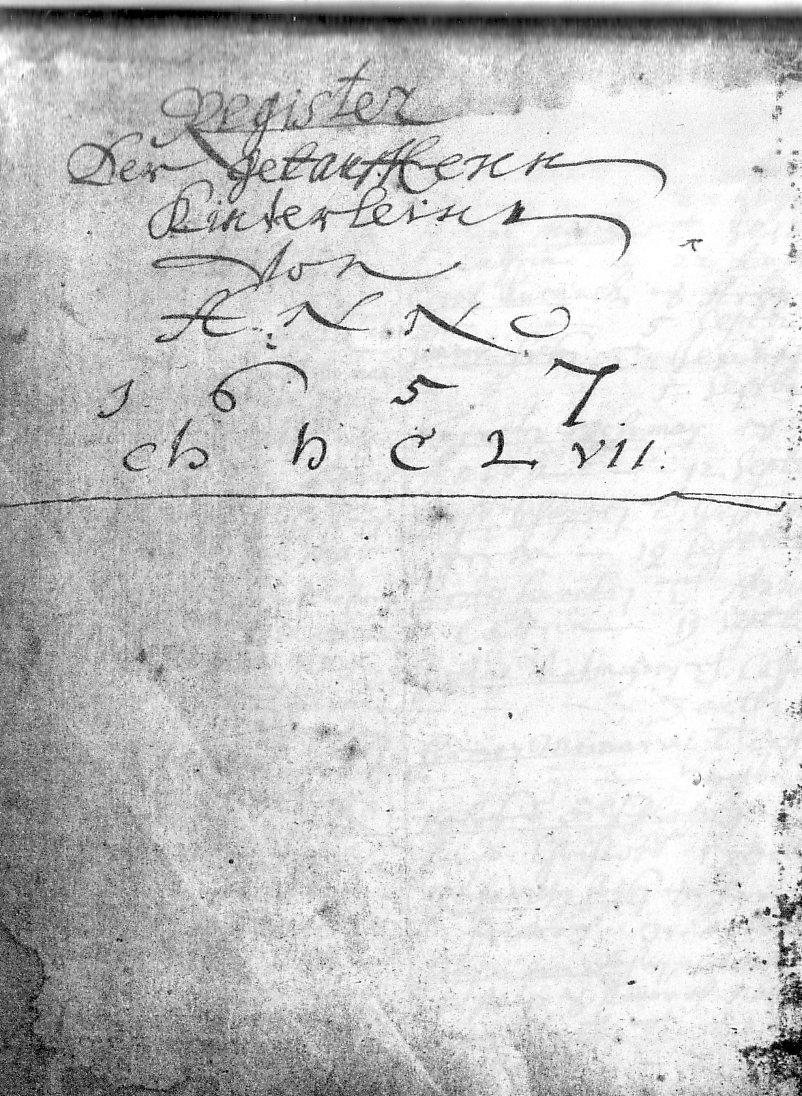 Register
Der getaufftenn
Kinderleinn
Von
ANNO
1 6 5 7
ch h C L VII.